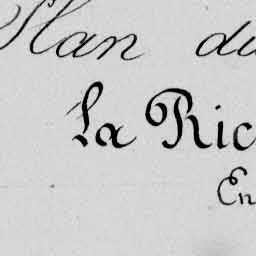 Plan du
La Ric
En